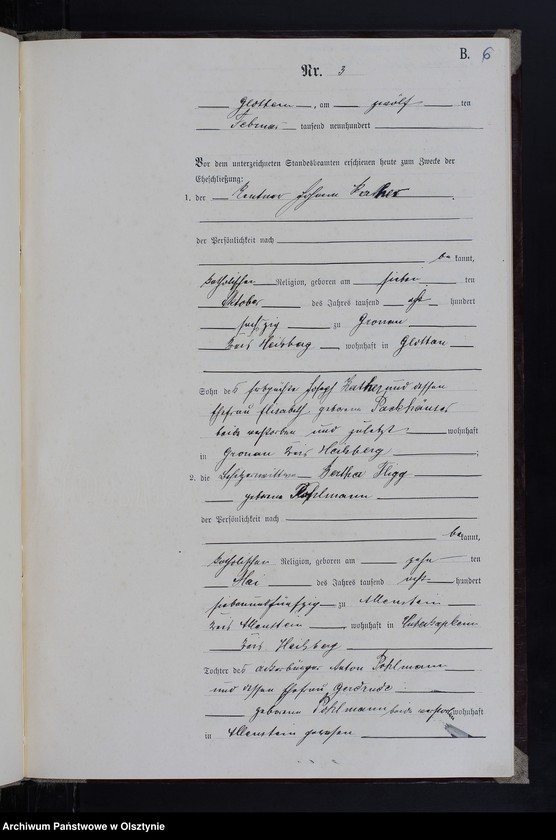 B. 6
Nr. 3
Glottau, am zwölf ten
Februar tausend neunhundert
Vor dem unterzeichneten Standesbeamten erschienen heute zum Zwecke der
Eheschließung:
1. der Rentner Johann
der Persönlichkeit nach
be kannt,
katholischer Religion, geboren am sieben ten
Oktober des Jahres tausend acht hundert
sechszig zu Gronau
Kreis Heilsberg, wohnhaft in Glottau
Sohn des Joseph und dessen
Ehefrau Elisabeth geborene
beide verstorben und zuletzt wohnhaft
in Gronau Kreis Heilsberg;
2. die Besitzerwittwe Bertha
geborene Pohlmann
der Persönlichkeit nach
bekannt,
katholischer Religion, geboren am zehn ten
Mai des Jahres tausend acht hundert
siebenundfünfzig zu Allenstein
Kreis Allenstein, wohnhaft in
Kreis Heilsberg
Tochter des Ackerbürger Anton Pohlmann
und dessen Ehefrau Gertrude
geborene Pohlmann beide verstorben wohnhaft
in Allenstein gewesen
Archiwum Państwowe w Olsztynie